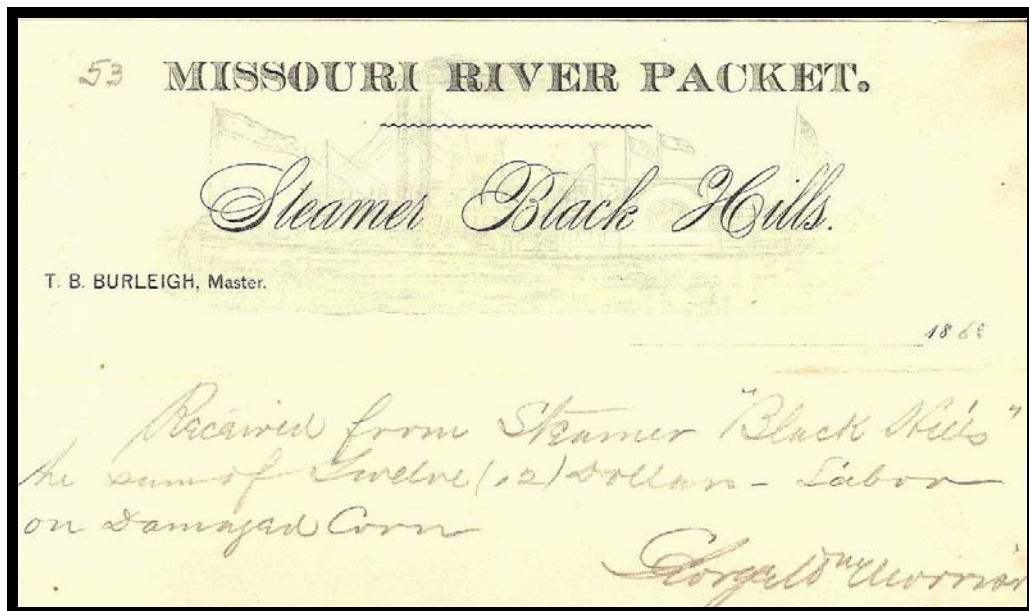 53 MISSOURI RIVER PACKET.
Steamer Black Hills.
T. B. BURLEIGH, Master.
1868
Received from Steamer "Black Hills"
he sum of Twelve (12) Dollars - Labor
on Damaged Corn
George Wm